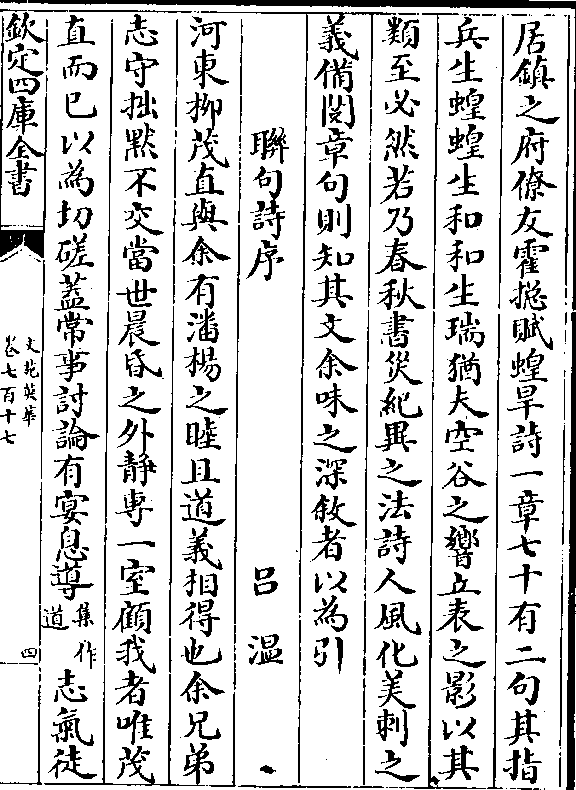 居鎮之府僚友霍揔賦蝗旱詩一章七十有二句其指
兵生蝗蝗生和和生瑞猶夫空谷之響立表之影以其
類至必然若乃春秋書災紀異之法詩人風化美刺之
義備閱章句則知其文余味之深敘者以為引
聯句詩序　呂溫
河東柳茂直與余有潘楊之睦且道義相得也余兄弟
志守拙默不交當世晨昏之外靜專一室顧我者唯茂
直而已以為切磋蓋常事討論有宴息導集作道志氣徒
欽定四庫全書
文苑英華
卷七百十七
四